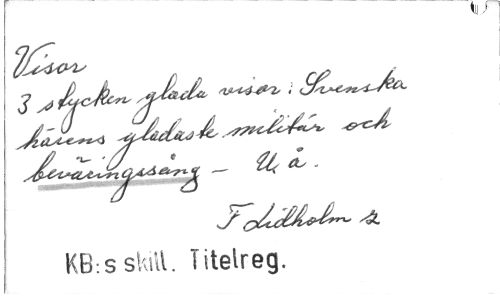 Visor
3 stycken glada visor: Svenska
härens gladaste militär och
beväringssång - U. å.
F Lidholm
KB:s skill. Titelreg.